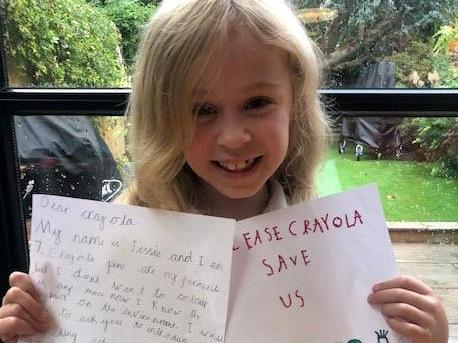 Dear crayola
My name is Jessie and I am
7. Crayola pens are my favourite
but I dont want to colour
any more now I know the
on the enviroment. I would
to ask you to introduce
LEASE CRAYOLA
SAVE
US